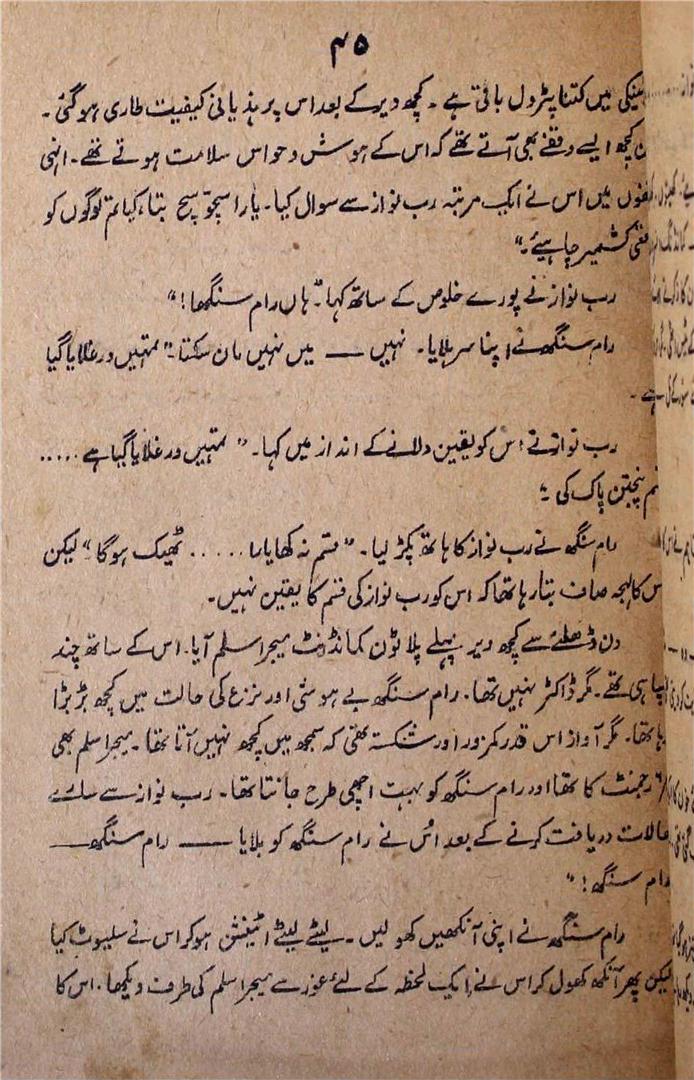 ۴۵
ٹینکی میں کتنا پٹرول باقی ہے۔ کچھ دیر کے بعد اس پر ہذیانی کیفیت طاری ہوگئی۔
کچھ ایسے وقفے بھی آتے تھے کہ اس کے ہوش و حواس سلامت ہوتے تھے۔ انہی
وقفوں میں اس نے ایک مرتبہ رب نواز سے سوال کیا۔ یارا سچو سچ بتا، کیا تم لوگوں کو
واقعی کشمیر چاہیئے۔"
رب نواز نے پورے خلوص کے ساتھ کہا۔ "ہاں رام سنگھا!"
رام سنگھ نے اپنا سر ہلایا۔ نہیں — میں نہیں مان سکتا۔" تمہیں ورغلایا گیا
ہے۔
رب نواز نے اس کو یقین دلانے کے انداز میں کہا۔" تمہیں ورغلایا گیا ہے .....
قسم پنجتن پاک کی ۔"
رام سنگھ نے رب نواز کا ہاتھ پکڑ لیا۔ "قسم نہ کھا یارا ..... ٹھیک ہوگا" لیکن
اس کا لہجہ صاف بتا رہا تھا کہ اس کو رب نواز کی قسم کا یقین نہیں۔
دن ڈھلنے سے کچھ دیر پہلے پلاٹون کمانڈنٹ میجر اسلم آیا۔ اس کے ساتھ چند
سپاہی تھے۔ مگر ڈاکٹر نہیں تھا۔ رام سنگھ بے ہوشی اور نزع کی حالت میں کچھ بڑبڑا
رہا تھا۔ مگر آواز اس قدر کمزور اور شکستہ تھی کہ سمجھ میں کچھ نہیں آتا تھا۔ میجر اسلم بھی
رجمنٹ کا تھا اور رام سنگھ کو بہت اچھی طرح جانتا تھا۔ رب نواز سے سارے
حالات دریافت کرنے کے بعد اُس نے رام سنگھ کو بلایا — رام سنگھ —
رام سنگھ!"
رام سنگھ نے اپنی آنکھیں کھولیں۔ لیٹے لیٹے اٹینشن ہو کر اس نے سلیوٹ کیا
لیکن پھر آنکھ کھول کر اس نے ایک لحظہ کے لئے غور سے میجر اسلم کی طرف دیکھا۔ اس کا